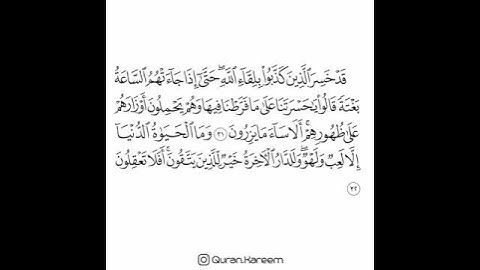 قَدْ خَسِرَ ٱلَّذِينَ كَذَّبُوا۟ بِلِقَآءِ ٱللَّهِ ۖ حَتَّىٰٓ إِذَا جَآءَتْهُمُ ٱلسَّاعَةُ
بَغْتَةً قَالُوا۟ يَٰحَسْرَتَنَا عَلَىٰ مَا فَرَّطْنَا فِيهَا وَهُمْ يَحْمِلُونَ أَوْزَارَهُمْ
عَلَىٰ ظُهُورِهِمْ ۚ أَلَا سَآءَ مَا يَزِرُونَ ٣١ وَمَا ٱلْحَيَوٰةُ ٱلدُّنْيَآ
إِلَّا لَعِبٌ وَلَهْوٌ ۖ وَلَلدَّارُ ٱلْءَاخِرَةُ خَيْرٌ لِّلَّذِينَ يَتَّقُونَ ۗ أَفَلَا تَعْقِلُونَ
٣٢
Quran.Kareem